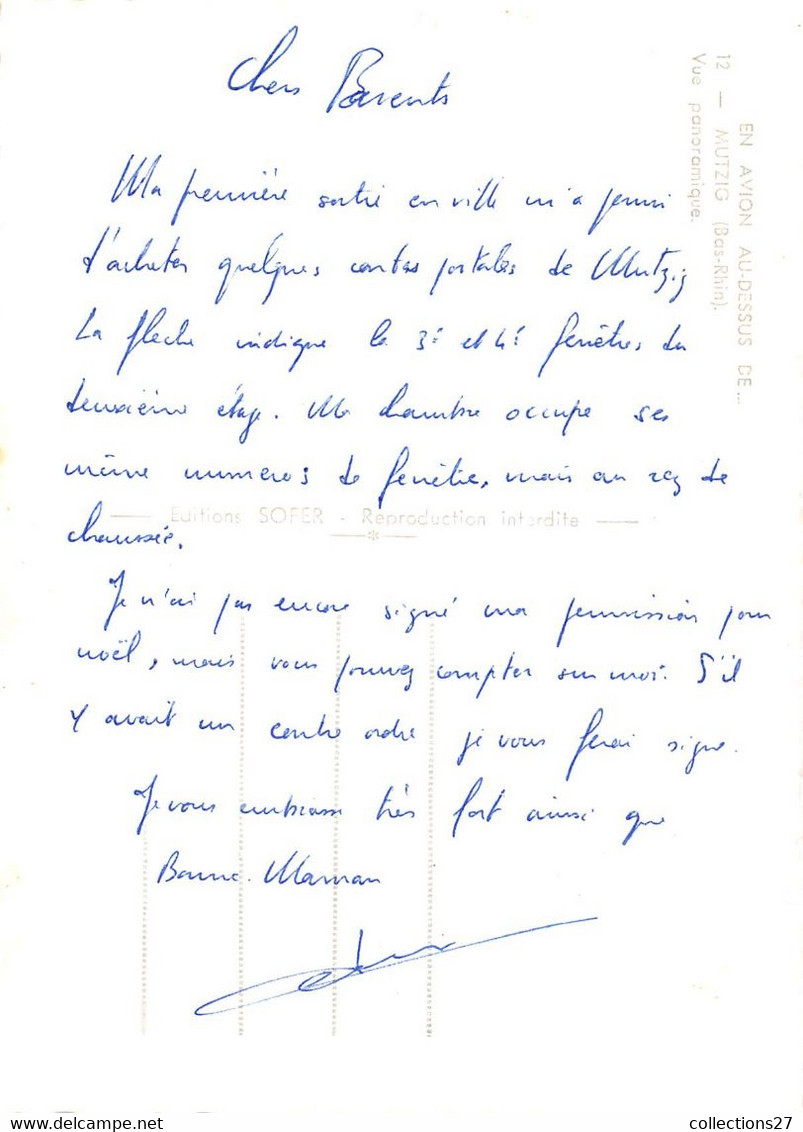 Chers Parents
Ma première sortie en ville m'a permi
d'acheter quelques cartes postales de Mutzig
La fleche indique la 3e et 4e fenêtres du
deuxième étage. Ma chambre occupe ses
même numeros de fenêtre, mais au rez de
chaussée.
Je n'ai pas encore signé ma permission pour
noël, mais vous pouvez compter sur moi. S'il
y avait un contre ordre je vous ferai signe.
Je vous embrasse très fort ainsi que
Bonne-Maman
EN AVION AU-DESSUS DE...
12 — MUTZIG (Bas-Rhin).
Vue panoramique.
Editions SOFER - Reproduction interdite
© DELCAMPE
collections27